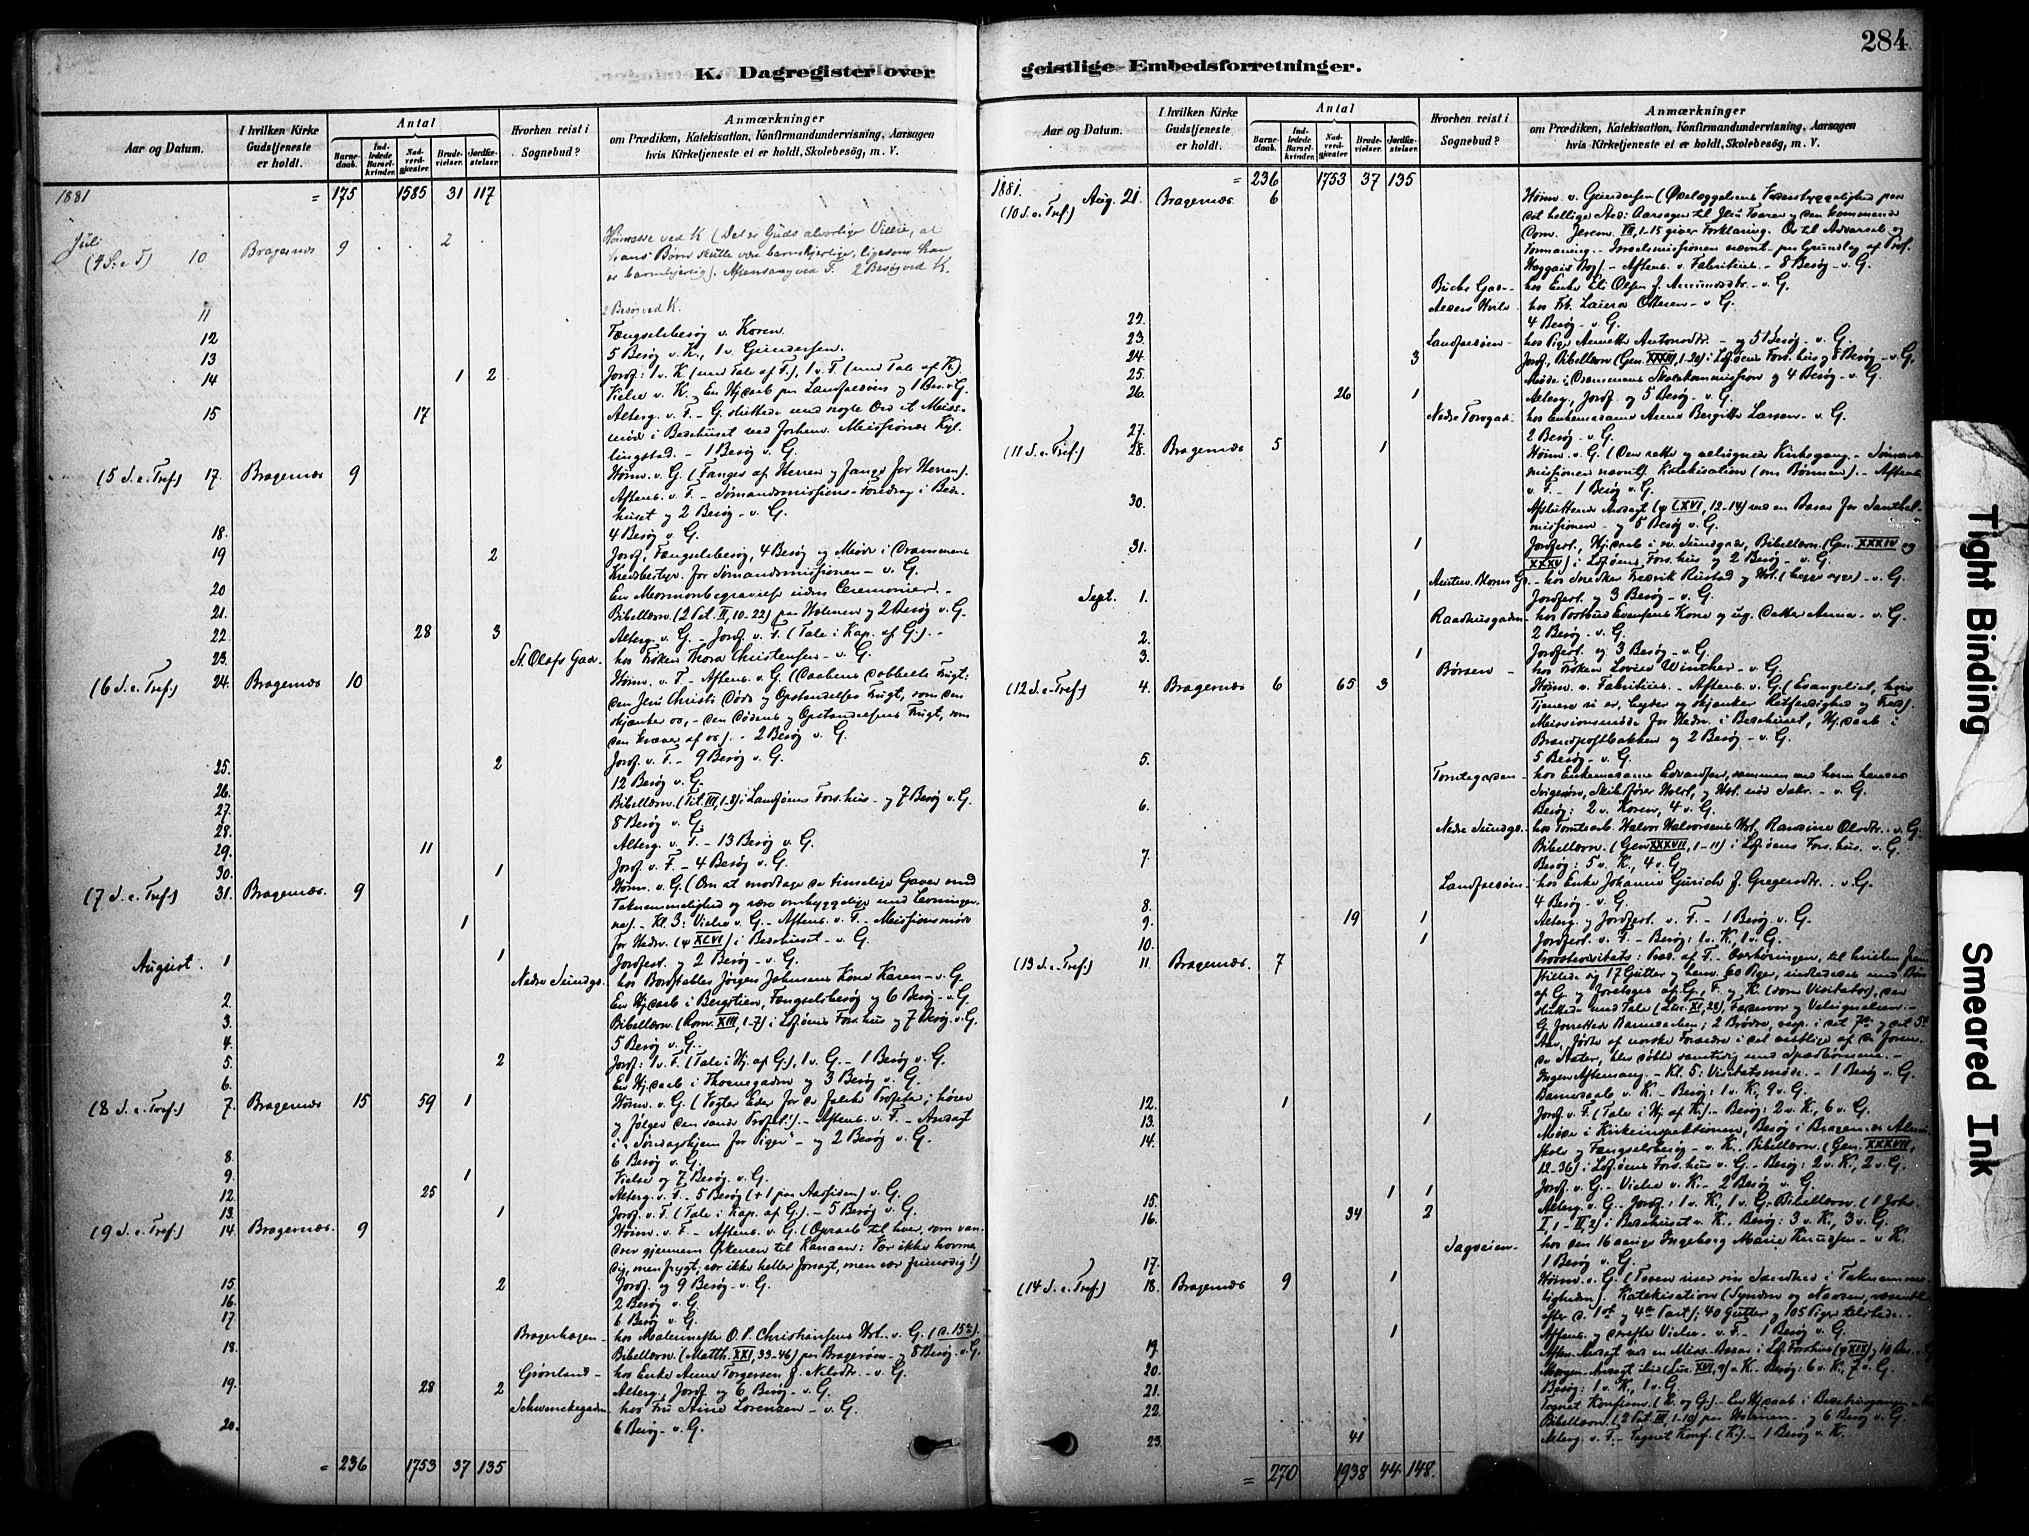 284
K. Dagregister over
geistlige Embedsforretninger.
Aar og Datum.
I hvilken Kirke Gudstjeneste er holdt.
Antal
Barnedaab.
Indledede Barselkvinder.
Nadverdgjæster
Brudevielser.
Jordfæstelser.
Hvorhen reist i Sognebud?
Anmærkninger
om Prædiken, Katekisation, Konfirmandundervisning, Aarsagen
hvis Kirketjeneste ei er holdt, Skolebesög, m. V.
1881 = 175 1585 31 117
Juli
(4 S. e. T) 10 Bragernæs 9 2
Høimesse ved K (Det er Guds alvorlige Villie, at
hans Børn skulle være barmhjertige, ligesom han
er barmhjertig). Aftensang ved F. 2 Besøg ved K.
11 2 Besøg ved K.
12 Fængselsbesøg v. Koren.
13 5 Besøg v. K., 1 v. Gundersen.
14 1 2 Jordf: 1 v. K (med Tale af F.), 1 v. F. (med Tale af K.)
Vielse v. K.
15 17 Alterg. v. F. - G. sluttede med nogle Ord et
møde i Bedehuset
lingstad. - 1 Besøg v. G.
(5 S. e. Tref.) 17. Bragernæs 9 Høim. v. G. (Fanges af Herren og fange for Herren).
Aftens. v. F. - Sømandsmissions-Foredrag i Bede-
huset og 2 Besøg - v. G.
18. 4 Besøg v. G.
19 2 Jordf. Fængselsbesøg, 4 Besøg og Møde i Drammens
Kredsbestyr. for Sømandsmissionen - v. G.
20 En Mormonbegravelse uden Ceremonier. -
21. Bibellæsn. (2 Pet. II, 10-22) paa Holmen og 2 Besøg v. G.
22 28 3 Alterg. v. G. - Jordf. v. F. (Tale i Kap. af G.). -
23. St. Olafs Gade. hos Frøken Thora Christensen - v. G.
(6 S. e. Tref.) 24. Bragernæs 10 Høim. v. F. - Aftens. v. G. (Daabens dobbelte Frugt:
den Jesu Christi Døds og Opstandelses Frugt, som den
skjænker os, - den Dødens og Opstandelsens Frugt, som
den kræver af os). - 2 Besøg v. G.
25. 2 Jordf. v. F. - 9 Besøg v. G.
26. 12 Besøg v. G.
27. Bibellæsn. (Tit. III, 1-8) i Landføens Fors.hus - og 7 Besøg v. G.
28. 8 Besøg v. G.
29. 11 Alterg. v. F. - 13 Besøg v. G.
30. 1 Jordf. v. F. - 4 Besøg v. G.
(7 S. e. Tref.) 31. Bragernæs. 9 Høim. v. G. (Om at modtage de timelige Gaver med
Taknemmelighed og være ombyggelige med Levninger-
ne). - Kl. 3: Vielse v. G. - Aftens. v. F. - Missionsmøde 1
for Hedn. (ψ XCVI) i Bedehuset - v. G.
August. 1 1 Jordfest. og 2 Besøg v. G.
Nedre Sundgd. hos Bordstabler Jørgen Johnsens Kone Karen - v. G.
2. En Hj.daab i Bergstien, Fængselsbesøg og 6 Besøg - v. G.
3. Bibellæsn. (Rom. XIII, 1-7) i Løføens Fors.hus og 7 Besøg. v. G.
4. 5 Besøg v. G.
5. 2 Jordf: 1 v. F. (Tale i Hj. af G.), 1 v. G. - 1 Besøg v. G.
6. En Hj.daab i Thornegaden og 3 Besøg v. G.
(8 S. e. Tref.) 7. Bragernæs 15 59 1 Høim. v. G. (Vogter Eder for de falske Profeter; hører
og følger den sande Profet!). - Aftens. v. F. - Andagt
i "Søndagshjem for Piger" - og 2 Besøg v. G.
8. 6 Besøg v. G.
9. 1 Vielse og 7 Besøg. v. G.
12. 25 Alterg. v. F. - 5 Besøg (+ 1 paa Aassiden) v. G.
13. 1 Jord. v. F. (Tale i Kap. af G.). - 5 Besøg v. G.
(9 S. e. Tref.) 14. Bragernæs. 9 Høim. v. F. - Aftens. v. G. (Opraab til hver, som van-
drer gjennem Ørkenen til Kanaan: Vær ikke hovmo-
dig, men frygt; vær ikke heller forsagt, men vær frimodig!)
15 2 Jordf. og 9 Besøg - v. G.
16. 2 Besøg v. G.
17 6 Besøg v. G.
Bragerhagen - hos Malermester O. P. Christiansens Hst. v. G. (d. 15de).
18. Bibellæsn. (Matth. XXI, 33-46) paa Bragerøen - og 8 Besøg. v. G.
Grønland - hos Enke Anne Torgersen f. Nilsdtr. - v. G.
19. 28 2 Alterg., Jordf. og 6 Besøg - v. G.
Schwenckegaden - hos Fru Aine Lorensen - v. G.
20. 6 Besøg - v. G.
= 236 1753 37 135
Aar og Datum.
I hvilken Kirke Gudstjeneste er holdt.
Antal
Barnedaab.
Indledede Barselkvinder.
Nadverdgjæster
Brudevielser.
Jordfæstelser.
Hvorhen reist i Sognebud?
Anmærkninger
om Prædiken, Katekisation, Konfirmandundervisning, Aarsagen
hvis Kirketjeneste ei er holdt, Skolebesög, m. V.
1881. = 236 1753 37 135
(10 S. e. Tref.) Aug. 21. Bragernæs. 6 Høim. v. Gundersen (Ødelæggelsens Vederstyggelighed paa
det hellige Sted: Aarsagen til Jesu Taarer og den kommende
Dom. Jerem. VII, 1-15 giver Forklaring. Os til Advarsel og
Formaning. - Israelsmissionen nævnt paa Grundlag af Prof.
Haggais Bog) - Aftens. v. Fabritius. - 8 Besøg - v. G.
hos Enke Eli Olsen f. Amundsdtr. - v. G.
hos Frk. Laura Ottesen - v. G.
22. 4 Besøg - v. G.
23. Landfaløen - hos Pige Annette Antonsdtr. - og 5 Besøg - v. G.
24. 3 Jordf., Bibellæsn. (Gen. XXXIII, 1-20) i Løføens Fors.hus og 8 Besøg - v. G.
25. Møde i Drammens Skolekommission og 4 Besøg - v. G.
26. 26 1 Alterg., Jordf. og 5 Besøg - v. G.
Nedre Torvgade - hos Enkemadame Anne Bergitte Larsen - v. G.
27. 2 Besøg - v. G.
(11 S. e. Tref.) 28. Bragernæs 5 1 Høim. v. G. (Den rette og velsignede Kirkegang. - Sømands-
missionen nævnt). Katekisation (om Bønnen). - Aftens.
v. F. - 1 Besøg v. G.
30. Afsluttende Andagt (ψ CXVI, 12-14) ved en Basar for Santhal-
missionen - og 5 Besøg v. G.
31. 1 Jordfest., Hj.daab i Sundgade, Bibellæsn. (Gen. XXXIV og
XXXV) i Løføens Fors.hus og 2 Besøg - v. G.
hos Snedker Fredrik Rustad og Hst. (begge syge) - v. G.
Sept. 1. 1 Jordfest. og 3 Besøg - v. G.
Raadhusgaden - hos Postbud Evensens Kone og ug. Datter Anna - v. G.
2. 2 Besøg - v. G.
3. 1 Jordfest. og 3 Besøg - v. G.
Børsen - hos Frøken Lovise Winther - v. G.
(12 S. e. Tref.) 4. Bragernæs 6 65 3 Høim. v. Fabritius. - Aftens. v. G. (Evangeliet, hvis
Tjenere vi er, byder og skjænker Retfærdighed og Fred).
Missionsmøde for Hedn. i Bedehuset, Hj.daab i
Brandpostbakken og 2 Besøg - v. G.
5. 5 Besøg - v. G.
Tomtegaden - hos Enkemadame Edvardsen, sammen med hvem hendes
Svigersøn, Skibsfører Holst, og Hst. nød Sakr. - v. G.
6. Besøg: 2 v. Koren, 4 v. G.
Nedre Sundgd. hos Tomtearb. Halvor Halvorsens Hst. Ransine Olsdtr. - v. G.
7. Bibellæsn. (Gen XXXVII, 1-11) i Løføens Fors.hus. v. G.
Besøg: 5 v. K., 4 v. G.
Landfaløen - hos Enke Johanne Gjurich f. Gregersdtr. - v. G.
8. 4 Besøg - v. G.
9. 19 1 Alterg. og Jordfest. v. F. - 1 Besøg v. G.
10. 1 Jordfest. v. F. - Besøg: 1 v. K., 1 v. G.
(13 S. e. Tref.) 11. Bragernæs. 7 Provstevisitats: Præd. af F. - Overhøringen, til hvilken frem-
stillede sig 17 Gutter og henv. 60 Piger, indlededes med Bøn
af G. og foretoges af G., F. og K. (som Visitator), der
sluttede med Tale (Luc. XI, 28), Fadervor og Velsignelsen. -
G. forrettede Barnedaaben; 2 Brødre, resp. i det 7de og det 5te
Aar, fødte af norske Forældre i det vestlige af de forene-
de Stater, blev døbte samtidig med Spædbørnene. -
Ingen Aftensang. - Kl. 5: Visitatsmøde. - 1 Besøg v. G.
12. 1 Barnedaab v. K. - Besøg: 1 v. K., 9 v. G.
13. 1 Jordf. v. F. (Tale i Hj. af K.). - Besøg: 2 v. K., 6 v. G.
14. Møde i Kirkeinspektionen, Besøg i Bragernæs Almue-
skole og Fængselsbesøg - v. K. Bibellæsn. (Gen. XXXVII,
12-36) i Løføens Fors.hus v. G. - Besøg: 2 v. K., 2 v. G.
15. 1 1 Jordf. v. G. - Vielse v. K. - 2 Besøg v. G.
16. 34 2 Alterg. v. G. Jordf: 1 v. K., 1 v. G. Bibellæsn. (1 Joh.
I, 1 - II, 2) i Bedehuset v. K. Besøg: 3 v. K., 3 v. G.
Sagveien - hos den 16 aarige Ingeborg Marie Knudsen - v. K.
17. 1 Besøg v. G.
(14 S. e. Tref.) 18. Bragernæs 9 1 Høim. v. G. (Troen viser sin Sandhed i Taknemme-
ligheden). Katekisation (Synden og Naaden, væsentl.
efter d. 1ste og 4de Part); 40 Gutter og 105 Piger tilstede.
1 Aftens. og derefter Vielse - v. F. - 1 Besøg v. G.
19. Aften-Andagt ved en Miss.-Basar i Løf. Forshus (ψ XIX) og 10 Bes. - v. G
20. Morgen-Andagt XVI, 9) v. K. Besøg: 6 v. K., 7 v. G.
21. Besøg: 1 v. K., 1 v. G.
22. Tegnet Konfirm. (K. og G.) - En Hj.daab i
Bibellæsn. (2 Pet. III, 1-10) paa Holmen - og 6 Besøg v. G.
23. 41 Alterg. v. F. - Tegnet Konf. (K.) - 1 Besøg v. K.
= 270 1938 44 148.
Tight Binding
Smeared Ink